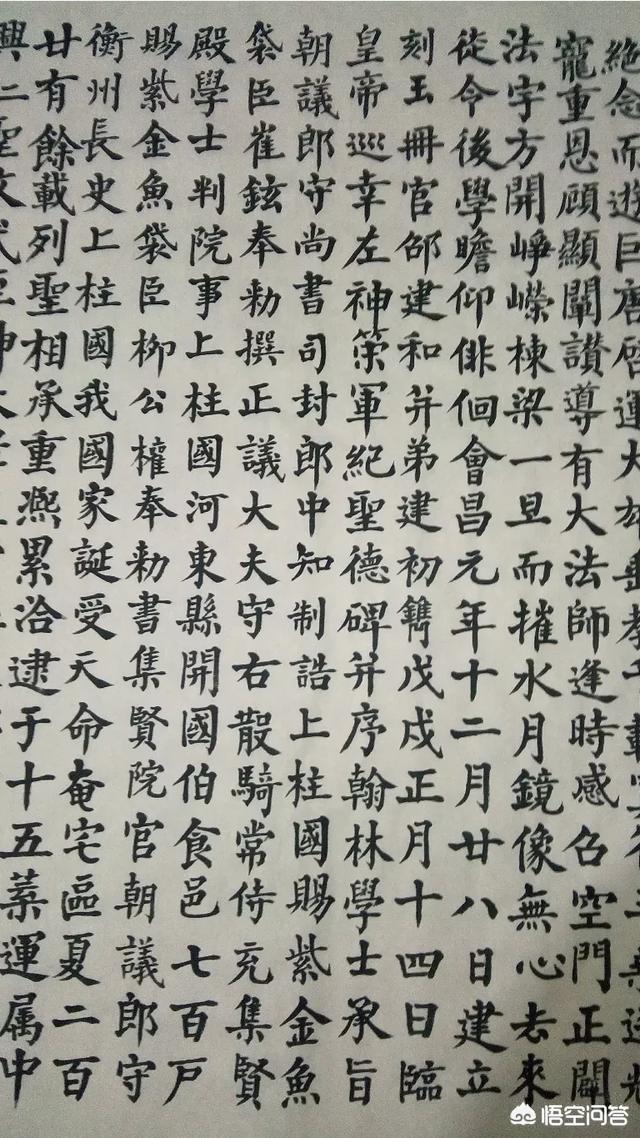 絶念而遊巨唐啓運大雄垂教千載
寵重恩顧顯闡讚導有大法師逢時感召空門正闢
法宇方開崢嶸棟梁一旦而摧水月鏡像無心去來
徒令後學瞻仰俳佪會昌元年十二月廿八日建立
刻玉冊官邵建和并弟建初鐫戊戌正月十四日臨
皇帝巡幸左神策軍紀聖德碑并序翰林學士承旨
朝議郎守尚書司封郎中知制誥上柱國賜紫金魚
袋臣崔鉉奉勑撰正議大夫守右散騎常侍充集賢
殿學士判院事上柱國河東縣開國伯食邑七百戸
賜紫金魚袋臣柳公權奉勑書集賢院官朝議郎守
衡州長史上柱國我國家誕受天命奄宅區夏二百
廿有餘載列聖相承重熈累洽逮于十五葉運属中
興仁聖文武
悟空问答